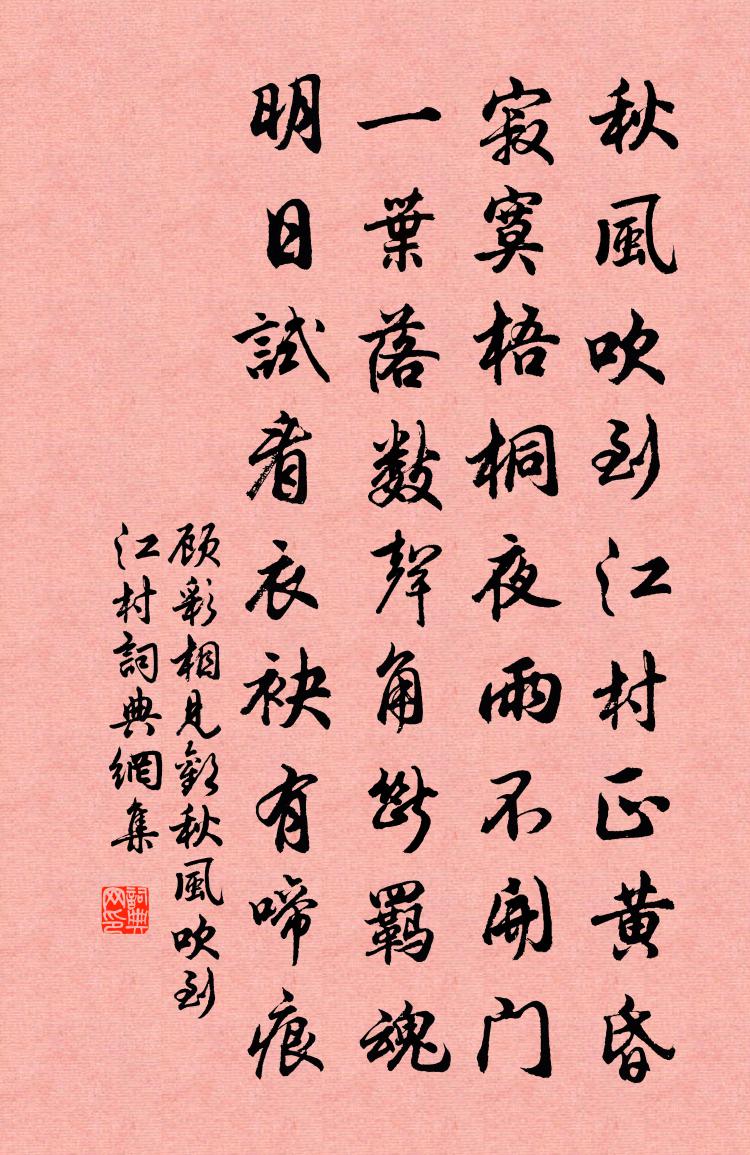 秋風吹到江村正黃昏
寂寞梧桐夜雨不開门
一葉落數聲角斷羈魂
明日試看衣袂有啼痕
顾彩相見歡秋風吹到
江村詞典網集
詞典網印